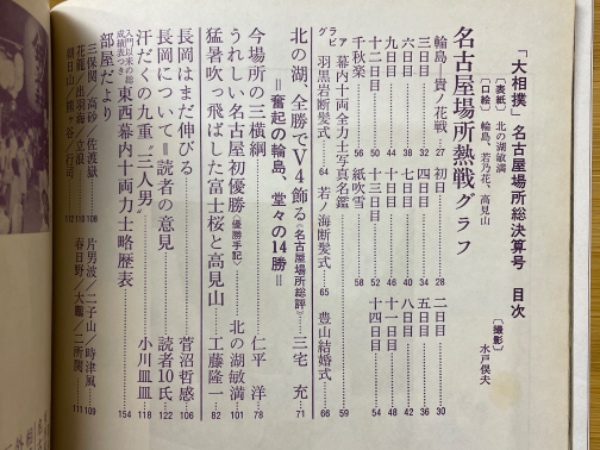 「大相撲」名古屋場所総決算号　目次
〔表紙〕北の湖敏満
〔口絵〕輪島、若乃花、高見山
〔撮影〕水戸俣夫
名古屋場所熱戦グラフ
輪島―貴ノ花戦…27　初日…28　二日目…30
三日目…32　四日目…34　五日目…36
六日目…38　七日目…40　八日目…42
九日目…44　十日目…46　十一日目…48
十二日目…50　十三日目…52　十四日目…54
千秋楽…56　紙吹雪…58
幕内十両全力士写真名鑑…59
グラビア　羽黒岩断髪式…64　若ノ海断髪式…65　豊山結婚式…66
北の湖、全勝でV4飾る《名古屋場所総評》…三宅　充…71
＝奮起の輪島、堂々の14勝＝
今場所の三横綱…仁平　洋…78
うれしい名古屋初優勝〈優勝手記〉…北の湖敏満…101
猛暑吹っ飛ばした富士桜と高見山…工藤隆一…82
長岡はまだ伸びる…菅沼哲感…106
長岡について＝読者の意見…読者10氏…122
汗だくの九重〝三人男〟…小川皿皿…118
入門以来の総成績表つき　東西幕内十両力士略歴表…154
部屋だより
三保関／高砂／佐渡嶽…108　片男波／二子山／時津風…109
花籠／出羽海／立浪…110　春日野／大鵬／二所関…111
朝日山／熊ヶ谷／行司…112